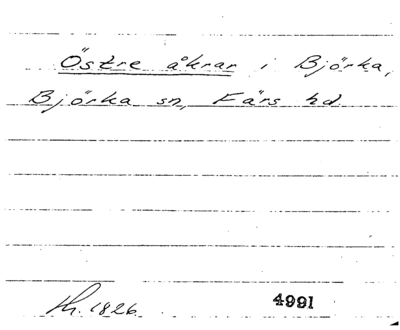 Östre åkrar i Björka,
Björka sn, Färs hd
th. 1826. 4991